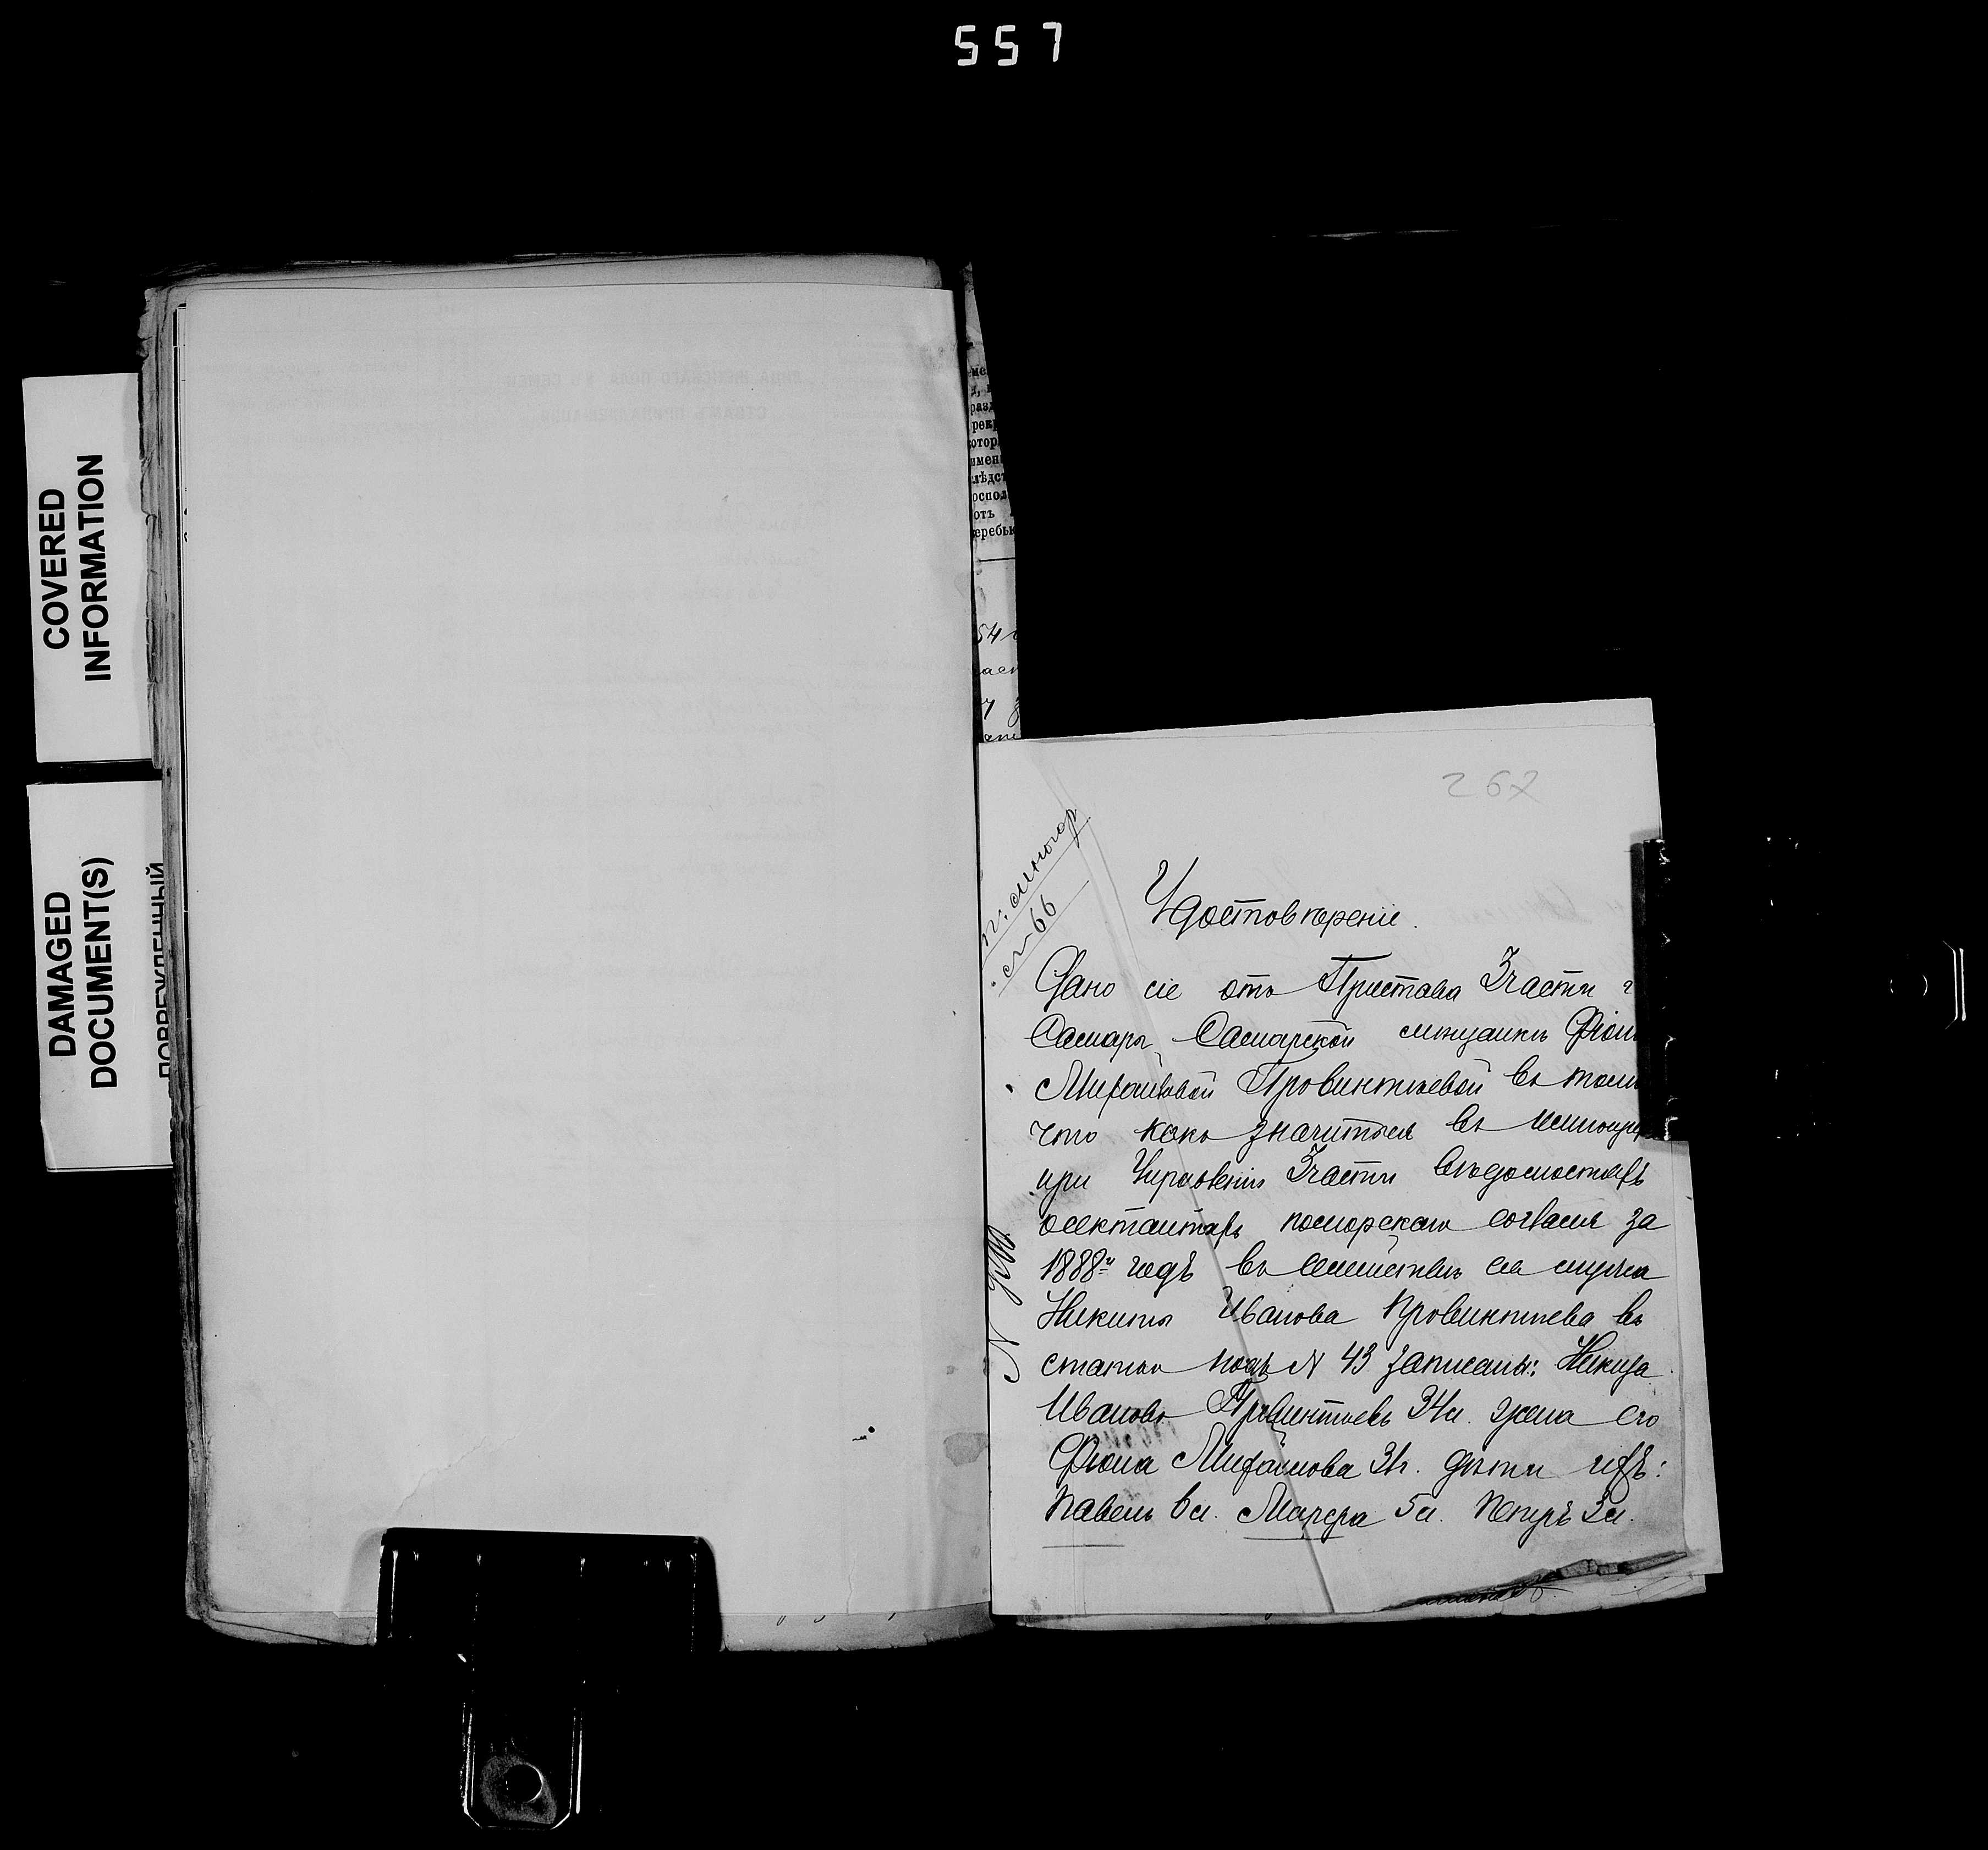 557
COVERED
INFORMATION
DAMAGED
DOCUMENT(S)
ПОВРЕЖДЕННЫЙ
267
66
Удостовѣреніе.
Дано сіе отъ Пристава 3 части г
Самары, Самарской мѣщанкѣ
Провинтьевой въ томъ
что какъ значится въ
при Управленіи 3 части вѣдомостяхъ
о сектантахъ поморскаго согласія за
1888й годъ въ семействѣ ея мужа
Никиты Иванова Провинтьева въ
статьѣ подъ № 43 записаны: Никита
Ивановъ Провинтьевъ 34 л. жена его
31 г. дѣти ихъ:
Павелъ 6 л. 5 л. Петръ 3 л.